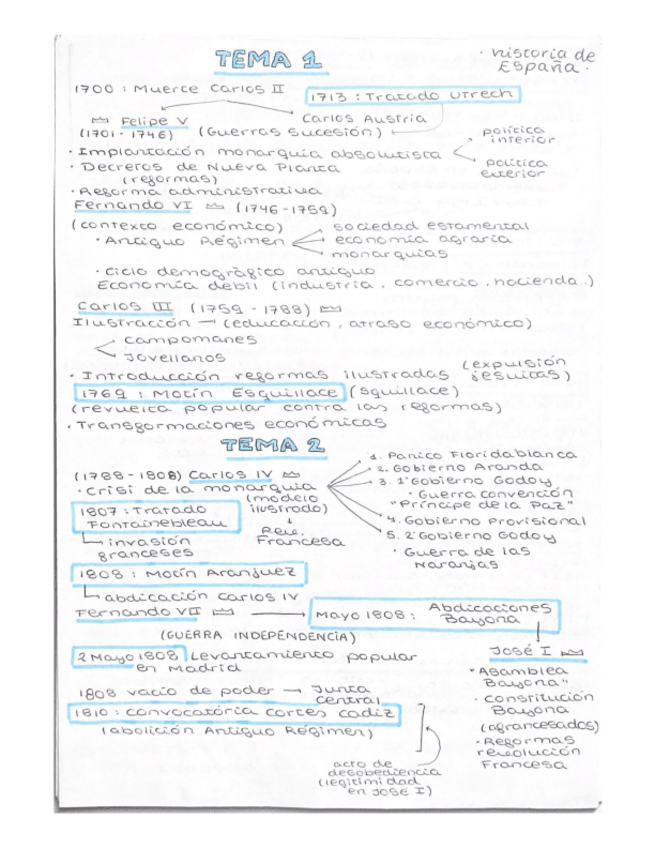 TEMA 1
· Historia de España ·
1700 : Muerte Carlos II
1713 : Tratado Utrech
Felipe V
(1701 - 1746)
Carlos Austria
(Guerras Sucesión)
· Implantación monarquía absolutista
política interior
política exterior
· Decretos de Nueva Planta
(reformas)
· Reforma administrativa
Fernando VI (1746 - 1759)
(contexto económico)
· Antiguo Régimen
sociedad estamental
economía agraria
monarquías
· Ciclo demográfico antiguo
Economía debil (industria, comercio, hacienda..)
Carlos III (1759 - 1788)
Ilustración → (educación, atraso económico)
campomanes
Jovellanos
· Introducción reformas ilustradas (expulsión jesuitas)
1769 : Motín Esquillace (Squillace)
(revuelta popular contra las reformas)
· Transformaciones económicas
TEMA 2
(1788 - 1808) Carlos IV
· Crisi de la monarquía
(modelo ilustrado)
↓
Rev. Francesa
1. Panico Floridablanca
2. Gobierno Aranda
3. 1º Gobierno Godoy
· Guerra convención
"Príncipe de la Paz"
4. Gobierno Provisional
5. 2º Gobierno Godoy
· Guerra de las Naranjas
1807 : Tratado Fontainebleau
invasión franceses
1808 : Motín Aranjuez
abdicación Carlos IV
Fernando VII → Mayo 1808 : Abdicaciones Bayona
(GUERRA INDEPENDENCIA)
2 Mayo 1808 Levantamiento popular
en Madrid
1808 vacío de poder → Junta central
1810 : convocatória cortes cadiz
(abolición Antiguo Régimen)
acto de desobediencia
(legitimidad en José I)
José I
"Asamblea Bayona"
· Constitución Bayona
(afrancesados)
· Reformas revolución Francesa